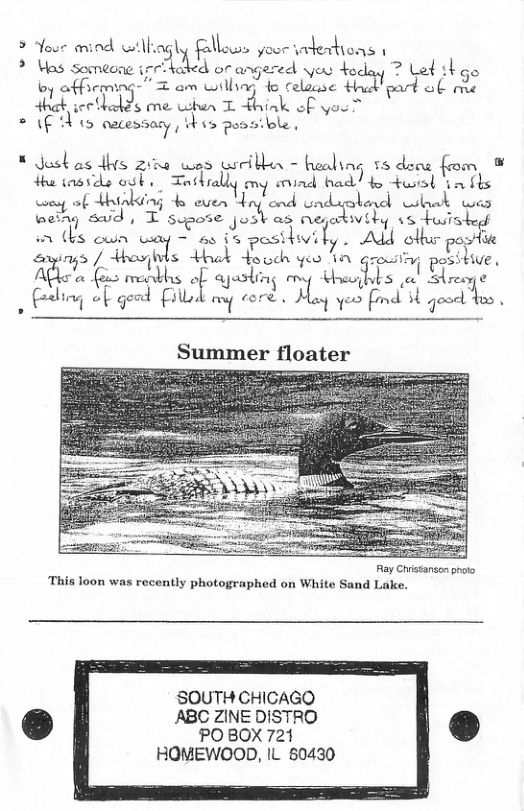 Your mind willingly fallows your intentions.
Has someone irritated or angered you today? Let it go
by affirming- "I am willing to release that part of me
that irritates me when I think of you."
If it is necessary, it is possible.
Just as this zine was written - healing is done from
the inside out. Initially my mind had to twist in its
way of thinking to even try and understand what was
being said, I supose just as negativity is twisted
in its own way - so is positivity. Add other positive
sayings / thoughts that touch you in growing positive.
After a few months of ajusting my thoughts, a strange
feeling of good filled my core. May you find it good too.
Summer floater
Ray Christianson photo
This loon was recently photographed on White Sand Lake.
SOUTH CHICAGO
ABC ZINE DISTRO
PO BOX 721
HOMEWOOD, IL 60430